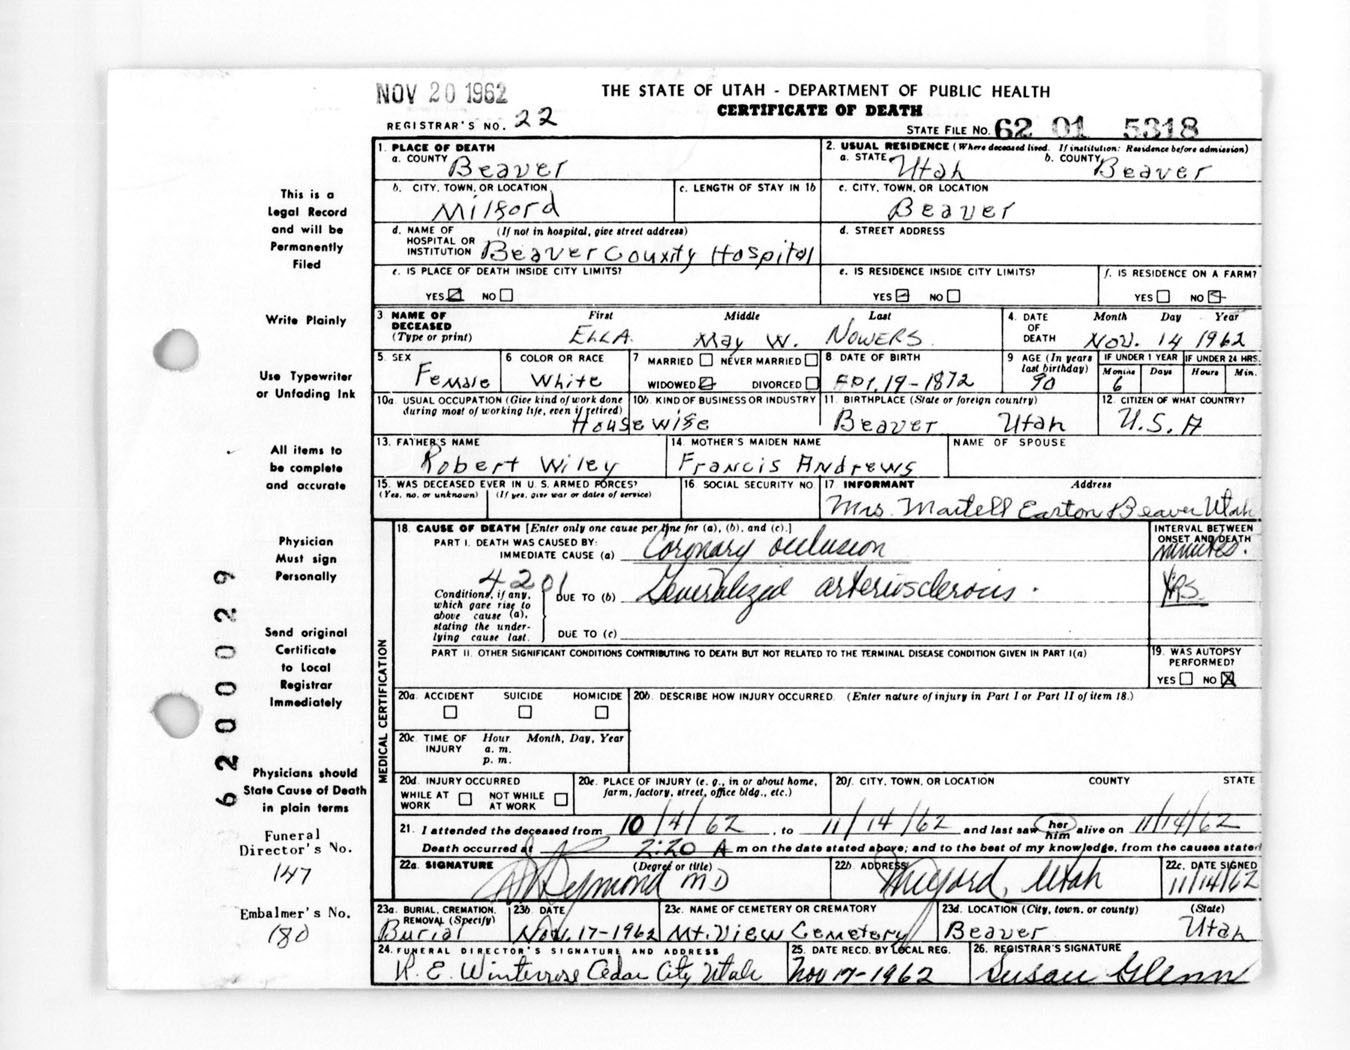 NOV 20 1962
THE STATE OF UTAH - DEPARTMENT OF PUBLIC HEALTH
CERTIFICATE OF DEATH
REGISTRAR'S NO. 22
STATE FILE NO. 62 01 5318
This is a
Legal Record
and will be
Permanently
Filed
Write Plainly
Use Typewriter
or Unfading Ink
All items to
be complete
and accurate
Physician
Must sign
Personally
Send original
Certificate
to Local
Registrar
Immediately
Physicians should
State Cause of Death
in plain terms
Funeral
Director's No.
147
Embalmer's No.
180
6200029
1. PLACE OF DEATH
a. COUNTY Beaver
2. USUAL RESIDENCE (Where deceased lived. If institution: Residence before admission)
a. STATE Utah b. COUNTY Beaver
b. CITY, TOWN, OR LOCATION Milford
c. LENGTH OF STAY IN 1b
c. CITY, TOWN, OR LOCATION
Beaver
d. NAME OF HOSPITAL OR INSTITUTION (If not in hospital, give street address)
Beaver County Hospital
d. STREET ADDRESS
e. IS PLACE OF DEATH INSIDE CITY LIMITS?
YES NO
e. IS RESIDENCE INSIDE CITY LIMITS?
YES NO
f. IS RESIDENCE ON A FARM?
YES NO
3 NAME OF DECEASED (Type or print) First Middle Last
ELLA May W. NOWERS
4. DATE OF DEATH Month Day Year
Nov. 14 1962
5. SEX Female
6 COLOR OR RACE White
7 MARRIED NEVER MARRIED
WIDOWED DIVORCED
8 DATE OF BIRTH
Apr. 19-1872
9 AGE (In years last birthday) 90
IF UNDER 1 YEAR IF UNDER 24 HRS.
Months Days Hours Min.
6
10a. USUAL OCCUPATION (Give kind of work done during most of working life, even if retired)
10b. KIND OF BUSINESS OR INDUSTRY
Housewife
11. BIRTHPLACE (State or foreign country)
Beaver Utah
12. CITIZEN OF WHAT COUNTRY?
U.S.A
13. FATHER'S NAME
Robert Wiley
14. MOTHER'S MAIDEN NAME
Francis Andrews
NAME OF SPOUSE
15. WAS DECEASED EVER IN U.S. ARMED FORCES?
(Yes, no, or unknown) (If yes, give war or dates of service)
16. SOCIAL SECURITY NO.
17 INFORMANT Address
Mrs. Martell Easton Beaver Utah
MEDICAL CERTIFICATION
18. CAUSE OF DEATH [Enter only one cause per line for (a), (b), and (c).]
PART I. DEATH WAS CAUSED BY:
IMMEDIATE CAUSE (a) Coronary occlusion
INTERVAL BETWEEN ONSET AND DEATH
minutes.
4201
Conditions, if any, which gave rise to above cause (a), stating the underlying cause last.
DUE TO (b) Generalized arteriosclerosis.
yrs.
DUE TO (c)
PART II. OTHER SIGNIFICANT CONDITIONS CONTRIBUTING TO DEATH BUT NOT RELATED TO THE TERMINAL DISEASE CONDITION GIVEN IN PART I(a)
19. WAS AUTOPSY PERFORMED?
YES NO
20a. ACCIDENT SUICIDE HOMICIDE
20b. DESCRIBE HOW INJURY OCCURRED. (Enter nature of injury in Part I or Part II of item 18.)
20c. TIME OF INJURY Hour Month, Day, Year
a. m.
p. m.
20d. INJURY OCCURRED
WHILE AT WORK NOT WHILE AT WORK
20e. PLACE OF INJURY (e. g., in or about home, farm, factory, street, office bldg., etc.)
20f. CITY, TOWN, OR LOCATION COUNTY STATE
21. I attended the deceased from 10/4/62, to 11/14/62 and last saw her him alive on 11/14/62
Death occurred at 2:20 A m on the date stated above; and to the best of my knowledge, from the causes stated
22a. SIGNATURE (Degree or title)
Symond MD
22b ADDRESS
Milford, Utah
22c. DATE SIGNED
11/14/62
23a. BURIAL, CREMATION, REMOVAL (Specify)
Burial
23b. DATE
Nov. 17-1962
23c. NAME OF CEMETERY OR CREMATORY
Mt. View Cemetery
23d. LOCATION (City, town, or county) (State)
Beaver Utah
24. FUNERAL DIRECTOR'S SIGNATURE AND ADDRESS
R. E. Winterrose Cedar City Utah
25. DATE RECD. BY LOCAL REG.
Nov 17-1962
26. REGISTRAR'S SIGNATURE
Susan Glenn